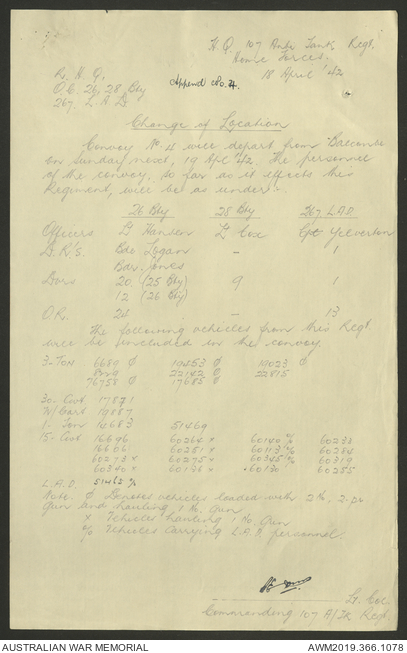 H.Q. 107 Anti Tank Regt.
Home Forces.
18 April '42
R.H.Q.
O.C. 26, 28 Bty
267. L.A.D.
Append No. 4.
Change of Location
Convoy No. 4 will depart from
on Sunday next, 19 Apl '42. The personnel
of the convoy, so far as it effects this
Regiment, will be as under:-
26 Bty 28 Bty 267 L.A.D.
Officers Lt Hansen Lt Cox Cpt Yelverton
D.R's. Bdr Logan - 1
Bdr. Jones
Dvrs 20 (25 Bty) 9 1
12 (26 Bty)
O.R. 24 - 13
The following vehicles from this Regt
will be included in the convoy.
3-Ton 6689 ∅ 19453 ∅ 19023 ∅
22142 ∅ 22815
76758 ∅ 17685 ∅
30. Cwt. 17821
W/Cart 19887
1. Ton 10683 51469
15. Cwt 16696 60264 x 60140 % 60233
16606 60251 x 60113 % 60284
60273 x 60275 x 60345 % 60319
60340 x 60136 x 60130 60285
L.A.D. 51462 %
Note. ∅ Denotes vehicles loaded with 2 Pr.
Gun and hauling 1 No. Gun
x Vehicles hauling 1 No. Gun
% Vehicles carrying L.A.D. personnel.
Lt. Col.
Commanding 107 A/Tk Regt.
AUSTRALIAN WAR MEMORIAL
AWM2019.366.1078